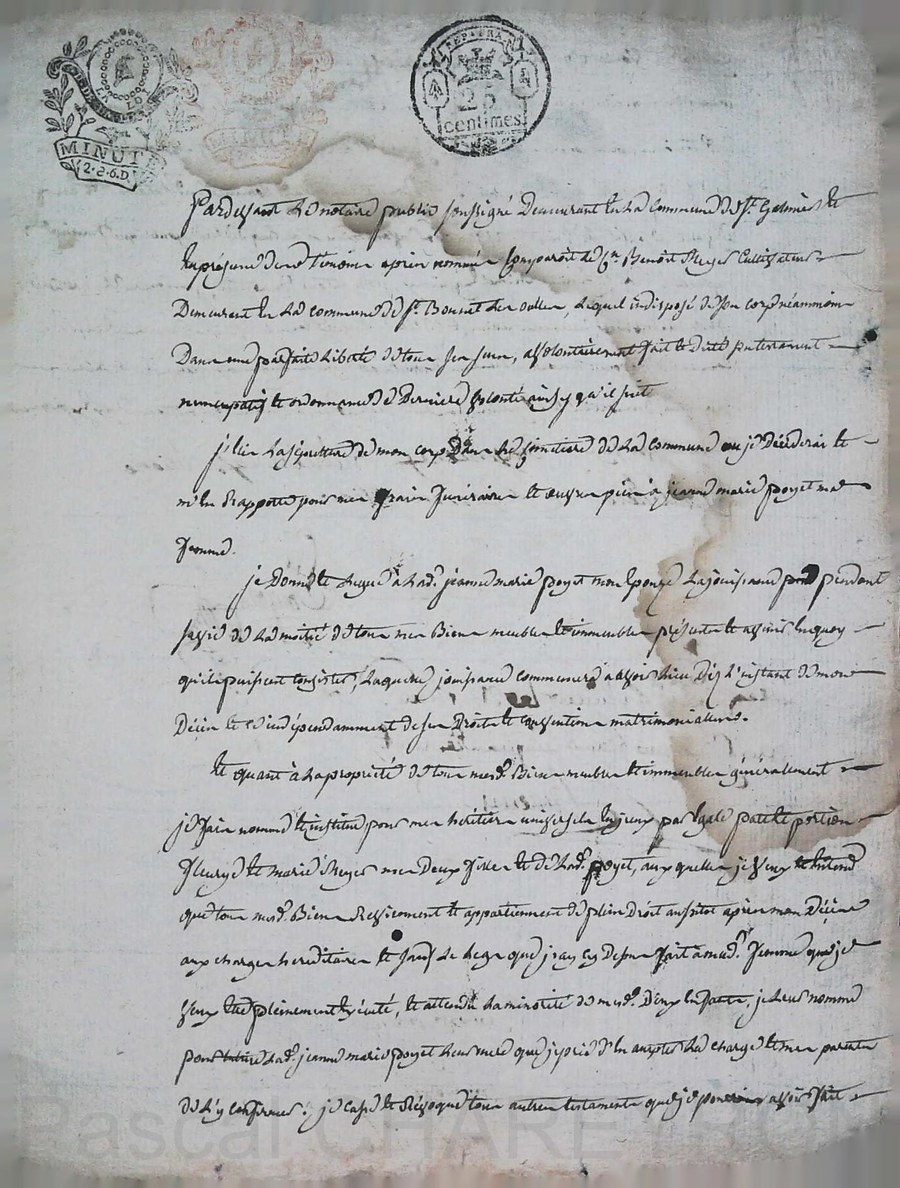 LA LOI
MINUTE
2. S. 6. D.
REP. FRA.
25
centimes
Pardevant Le notaire public soussigné Demeurant En La Commune de St. Galmier Et
En présence des Temoins après nommés Comparoit le Cn. Benoit Cultivateur
Demeurant En La commune de St. Bonnet Les oulles, Lequel indisposé de son corps néanmoins
Dans une parfaite Liberté de tous ses sens, a volontairement fait Et Dicté son testament
nuncupatif Et ordonnance de Derniere volonté ainsy qu'il suit
j'Elis La sépulture de mon corps Dans Le simetiere de La commune ou je Décéderai Et
m'En rapporte pour mes frais funéraires Et œuvres pies à jeanne marie poyet ma
femme.
je Donne Et Legue à Lad. jeanne marie poyet mon Epouse La jouissance pend pendant
sa vie de La moitié de tous mes Biens meubles Et immeubles présents Et avenir En quoy
qu'ils puissent consister, Laquelle jouissance commencera à avoir Lieu Dès L'instant de mon
Décès Et ce indépendamment de ses Droits Et conventions matrimoniales.
Et quant à La propriété de tous mesd. Biens meubles Et immeubles généralement
je fais nomme Et institue pour mes héritières universelles Entr'eux par Egale part Et portion
fleurye Et marie mes Deux filles Et de Lad. poyet, aux quelles je veux Et Entend
que tous mesd. Biens Et appartiennent de plein Droit aussitot après mon Décès
aux charges hereditaires Et sauf Le Legs que j'ay cy Dessus fait à mad. femme que je
veux Etre pleinement Exécuté, Et attendu La minorité de mesd. Deux Enfants, je Leur nomme
pour tutrice Lad. jeanne marie poyet Leur mere que je prie d'En accepter La charge Et mes parents
de L'y confirmer. je casse Et Révoque tous autres testaments que je pourrois avoir fait
Pascal CHARETRON